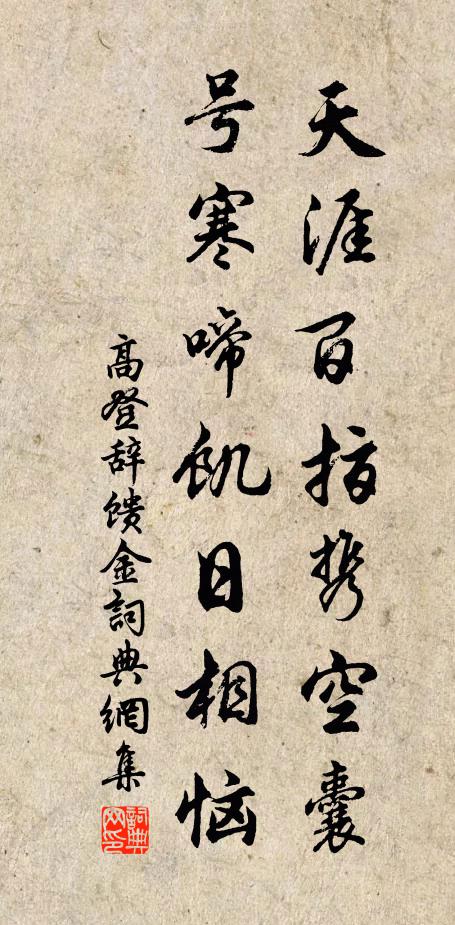 天涯百指携空囊
号寒啼饥日相恼
高登辞馈金詞典網集
詞典網印